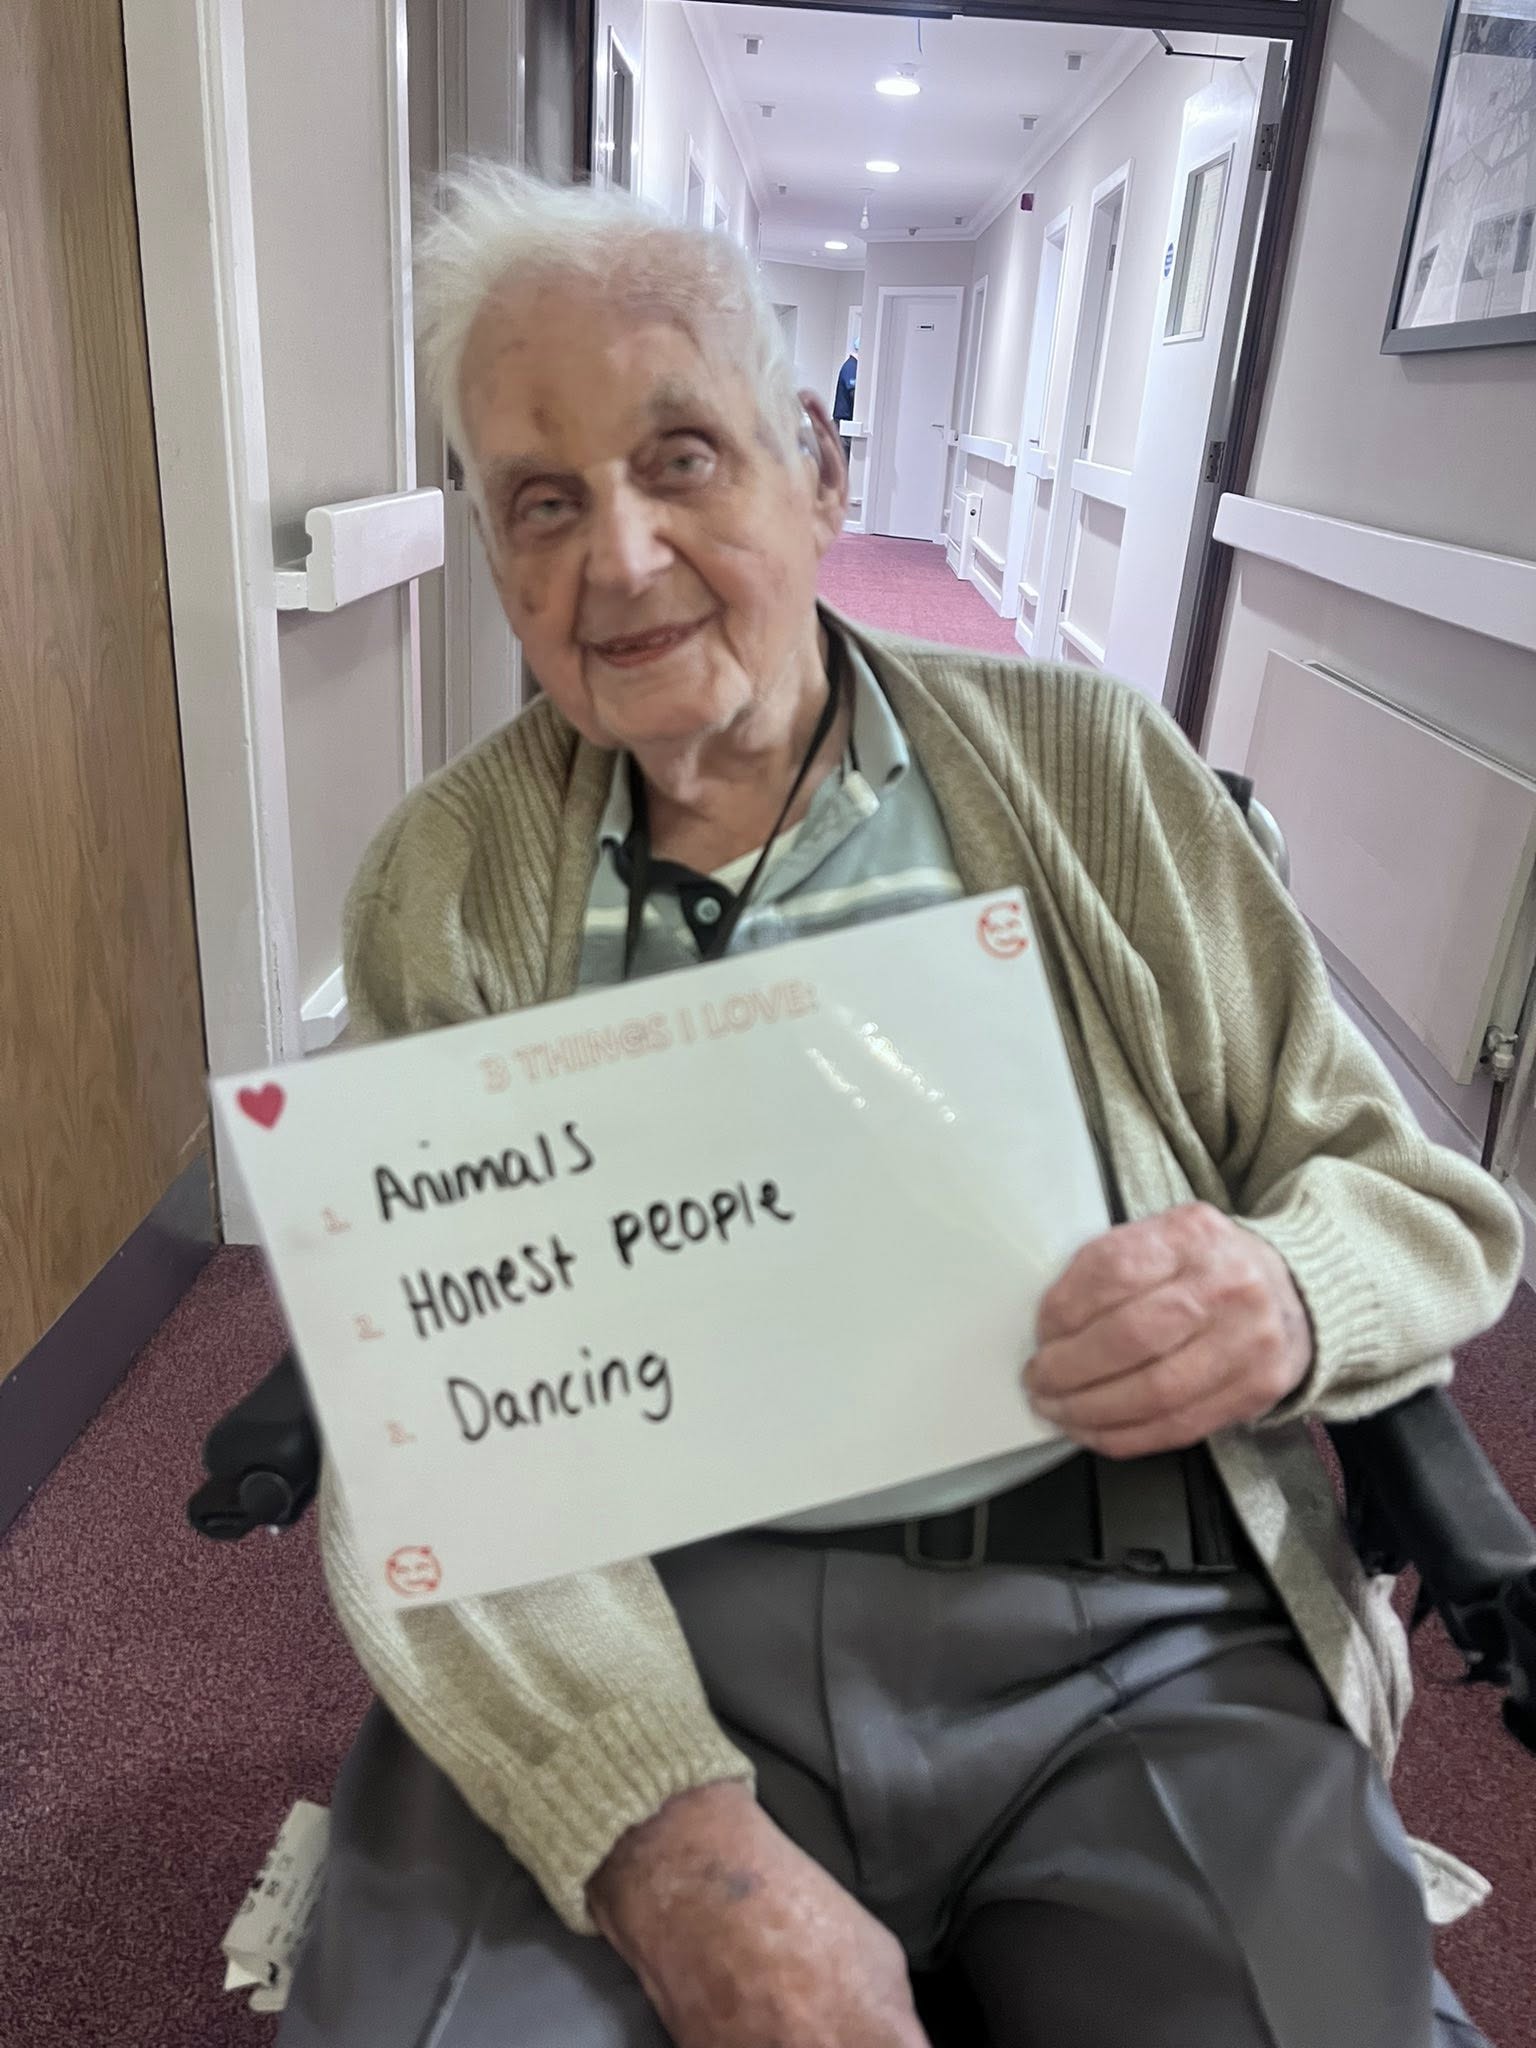 3 THINGS I LOVE:
1. Animals
2. Honest people
3. Dancing